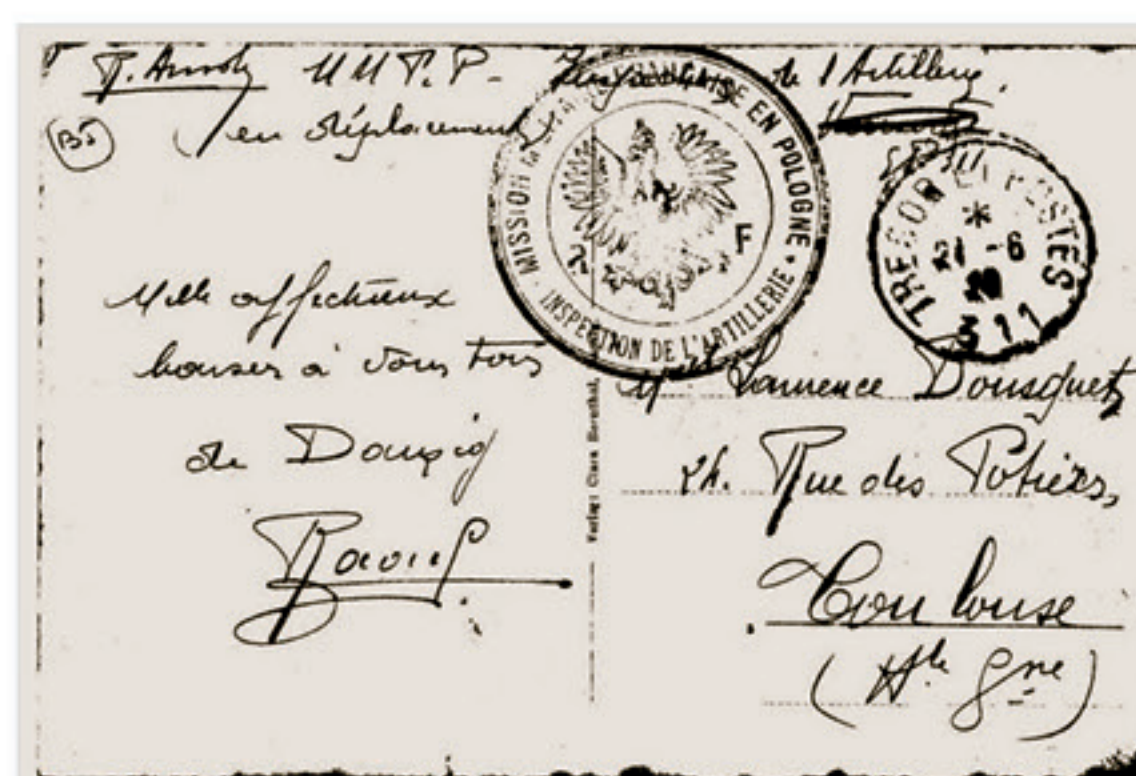 M M P. P. Inspection de l'Artillerie.
(en déplacement)
B5
MISSION MILITAIRE FRANÇAISE EN POLOGNE
F
INSPECTION DE L'ARTILLERIE
TRESOR ET POSTES
*
21 -6
20
511
Mille affectueux
baisers à vous tous
de Danzig
Raoul
Verlag: Clara Bernthal,
Laurence Dousquet
24. Rue des Potiers,
Toulouse
(Hte Gne)